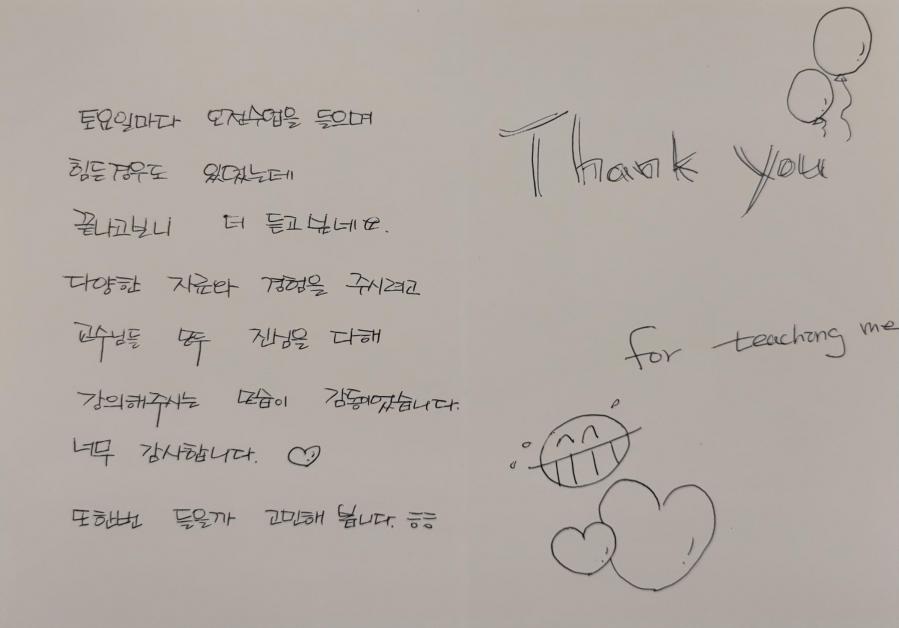 토요일마다 오전수업을 들으며
힘든경우도 있었는데
끝나고보니 더 듣고싶네요.
다양한 자료와 경험을 주시려고
교수님들 모두 진심을 다해
강의해주시는 모습이 감동이었습니다.
너무 감사합니다. ♡
또한번 들을까 고민해 봅니다. ㅎㅎ
Thank you
for teaching me